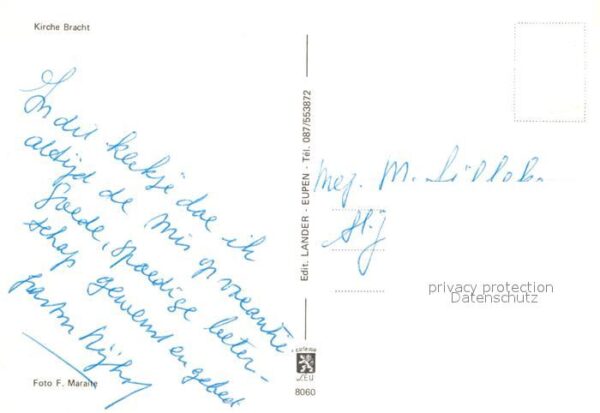 Kirche Bracht
In dit kerkje doe ik
altijd de mis op vacantie.
Goede, spoedige beter-
schap gewenst en gebed
pastor Nijhof
Foto F. Maraite
Edit. LANDER - EUPEN - Tél. 087/553872
8060
Mej. M.
privacy protection
Datenschutz